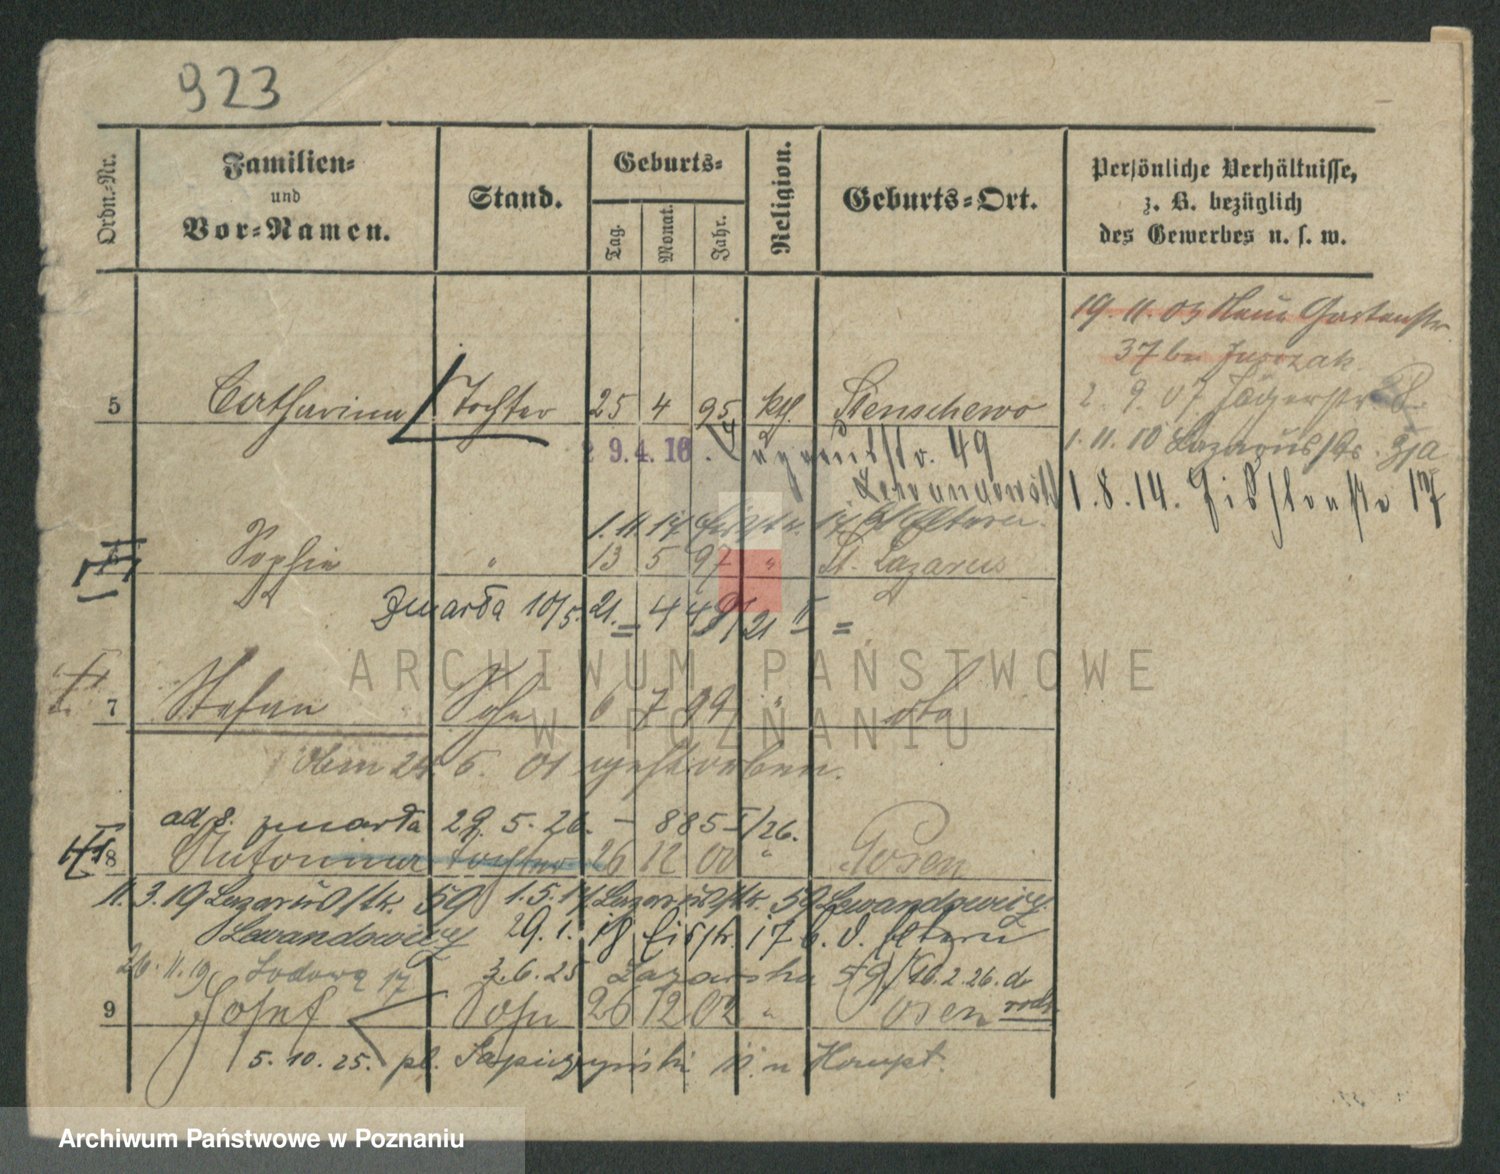 923
Ordn.-Nr.
Familien-
und
Vor-Namen.
Stand.
Geburts-
Tag.
Monat.
Jahr.
Religion.
Geburts-Ort.
Persönliche Verhältnisse,
z. B. bezüglich
des Gewerbes u. s. w.
19. 11. 03 Neue Gartenstr
37 bei Jurczak
2. 9. 07 Jägerstr
5 Catharina Tochter 25 4 95 kth. Stenschewo
1. 11. 10 Lazarusstr.
29.4.10. Lazarusstr. 49
Lewandowski
1. 8. 14. Fischerstr 17
1. 11. 17 17 b/ Eltern.
6 Sophie " 13 5 97 " St. Lazarus
zmarła 10/5. 21. = 21 II =
ARCHIWUM PAŃSTWOWE
7 Stefan Sohn 6 7 99 " dto
W POZNANIU
24. 6. 01 gestorben.
ad 8. zmarła 29. 5. 26. – 885 I/26.
8 Antonina Tochter 26 12 00 " Posen
11. 3. 19 Lazarusstr. 59 1. 5. 17 Lazarusstr. 59 Lewandowicz
Lewandowicz 29. 1. 18 17 b. d. Eltern
26. 11. 19 Lodowa 17 3. 6. 25 Lazarska 59/ 10. 2. 26. do
9 Josef Sohn 26 12 02 " Posen rodz
5. 10. 25. pl. Sapieżyński
Archiwum Państwowe w Poznaniu